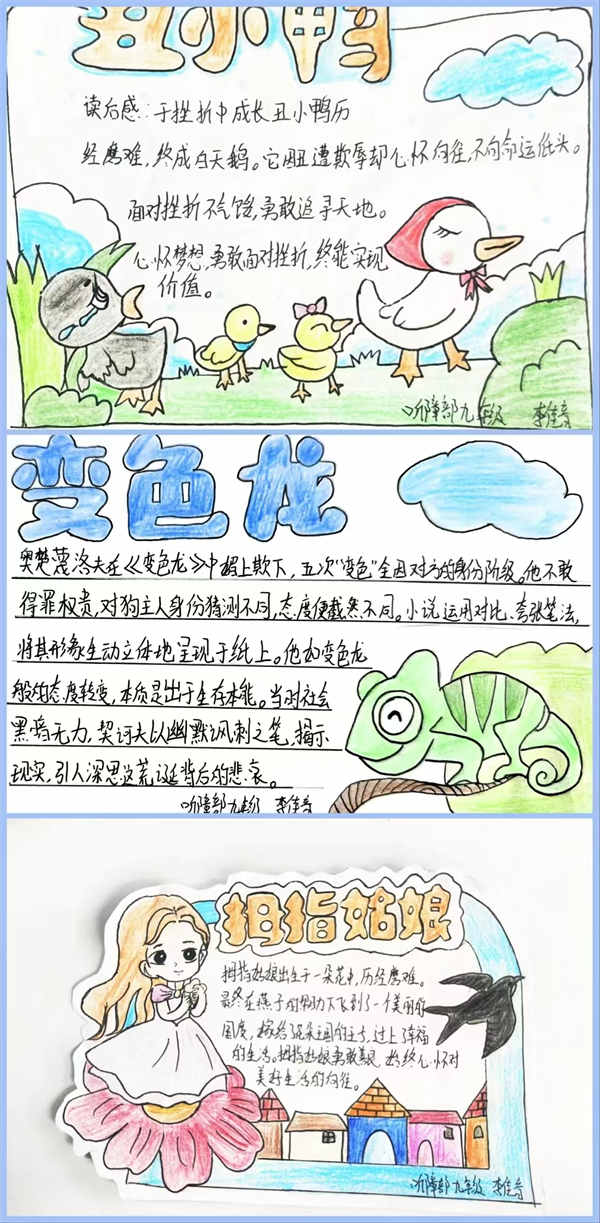 丑小鸭
读后感:于挫折中成长丑小鸭历
经磨难,终成白天鹅。它因丑遭欺辱却心怀向往,不向命运低头。
面对挫折不气馁,勇敢追寻天地。
心怀梦想,勇敢面对挫折,终能实现
价值。
听障部九年级 李佳音
变色龙
奥楚蔑洛夫在《变色龙》中媚上欺下,五次“变色”全因对方的身份阶级。他不敢
得罪权贵,对狗主人身份猜测不同,态度便截然不同。小说运用对比、夸张笔法,
将其形象生动立体地呈现于纸上。他如变色龙
般的态度转变,本质是出于生存本能。当时社会
黑暗无力,契诃夫以幽默讽刺之笔,揭示
现实,引人深思这荒诞背后的悲哀。
听障部九年级 李佳音
拇指姑娘
拇指姑娘出生于一朵花中,历经磨难。
最终在燕子的帮助下飞到了一个美丽的
国度,嫁给了花朵王国的王子,过上了幸福
的生活。拇指姑娘勇敢善良,始终心怀对
美好生活的向往。
听障部九年级 李佳音